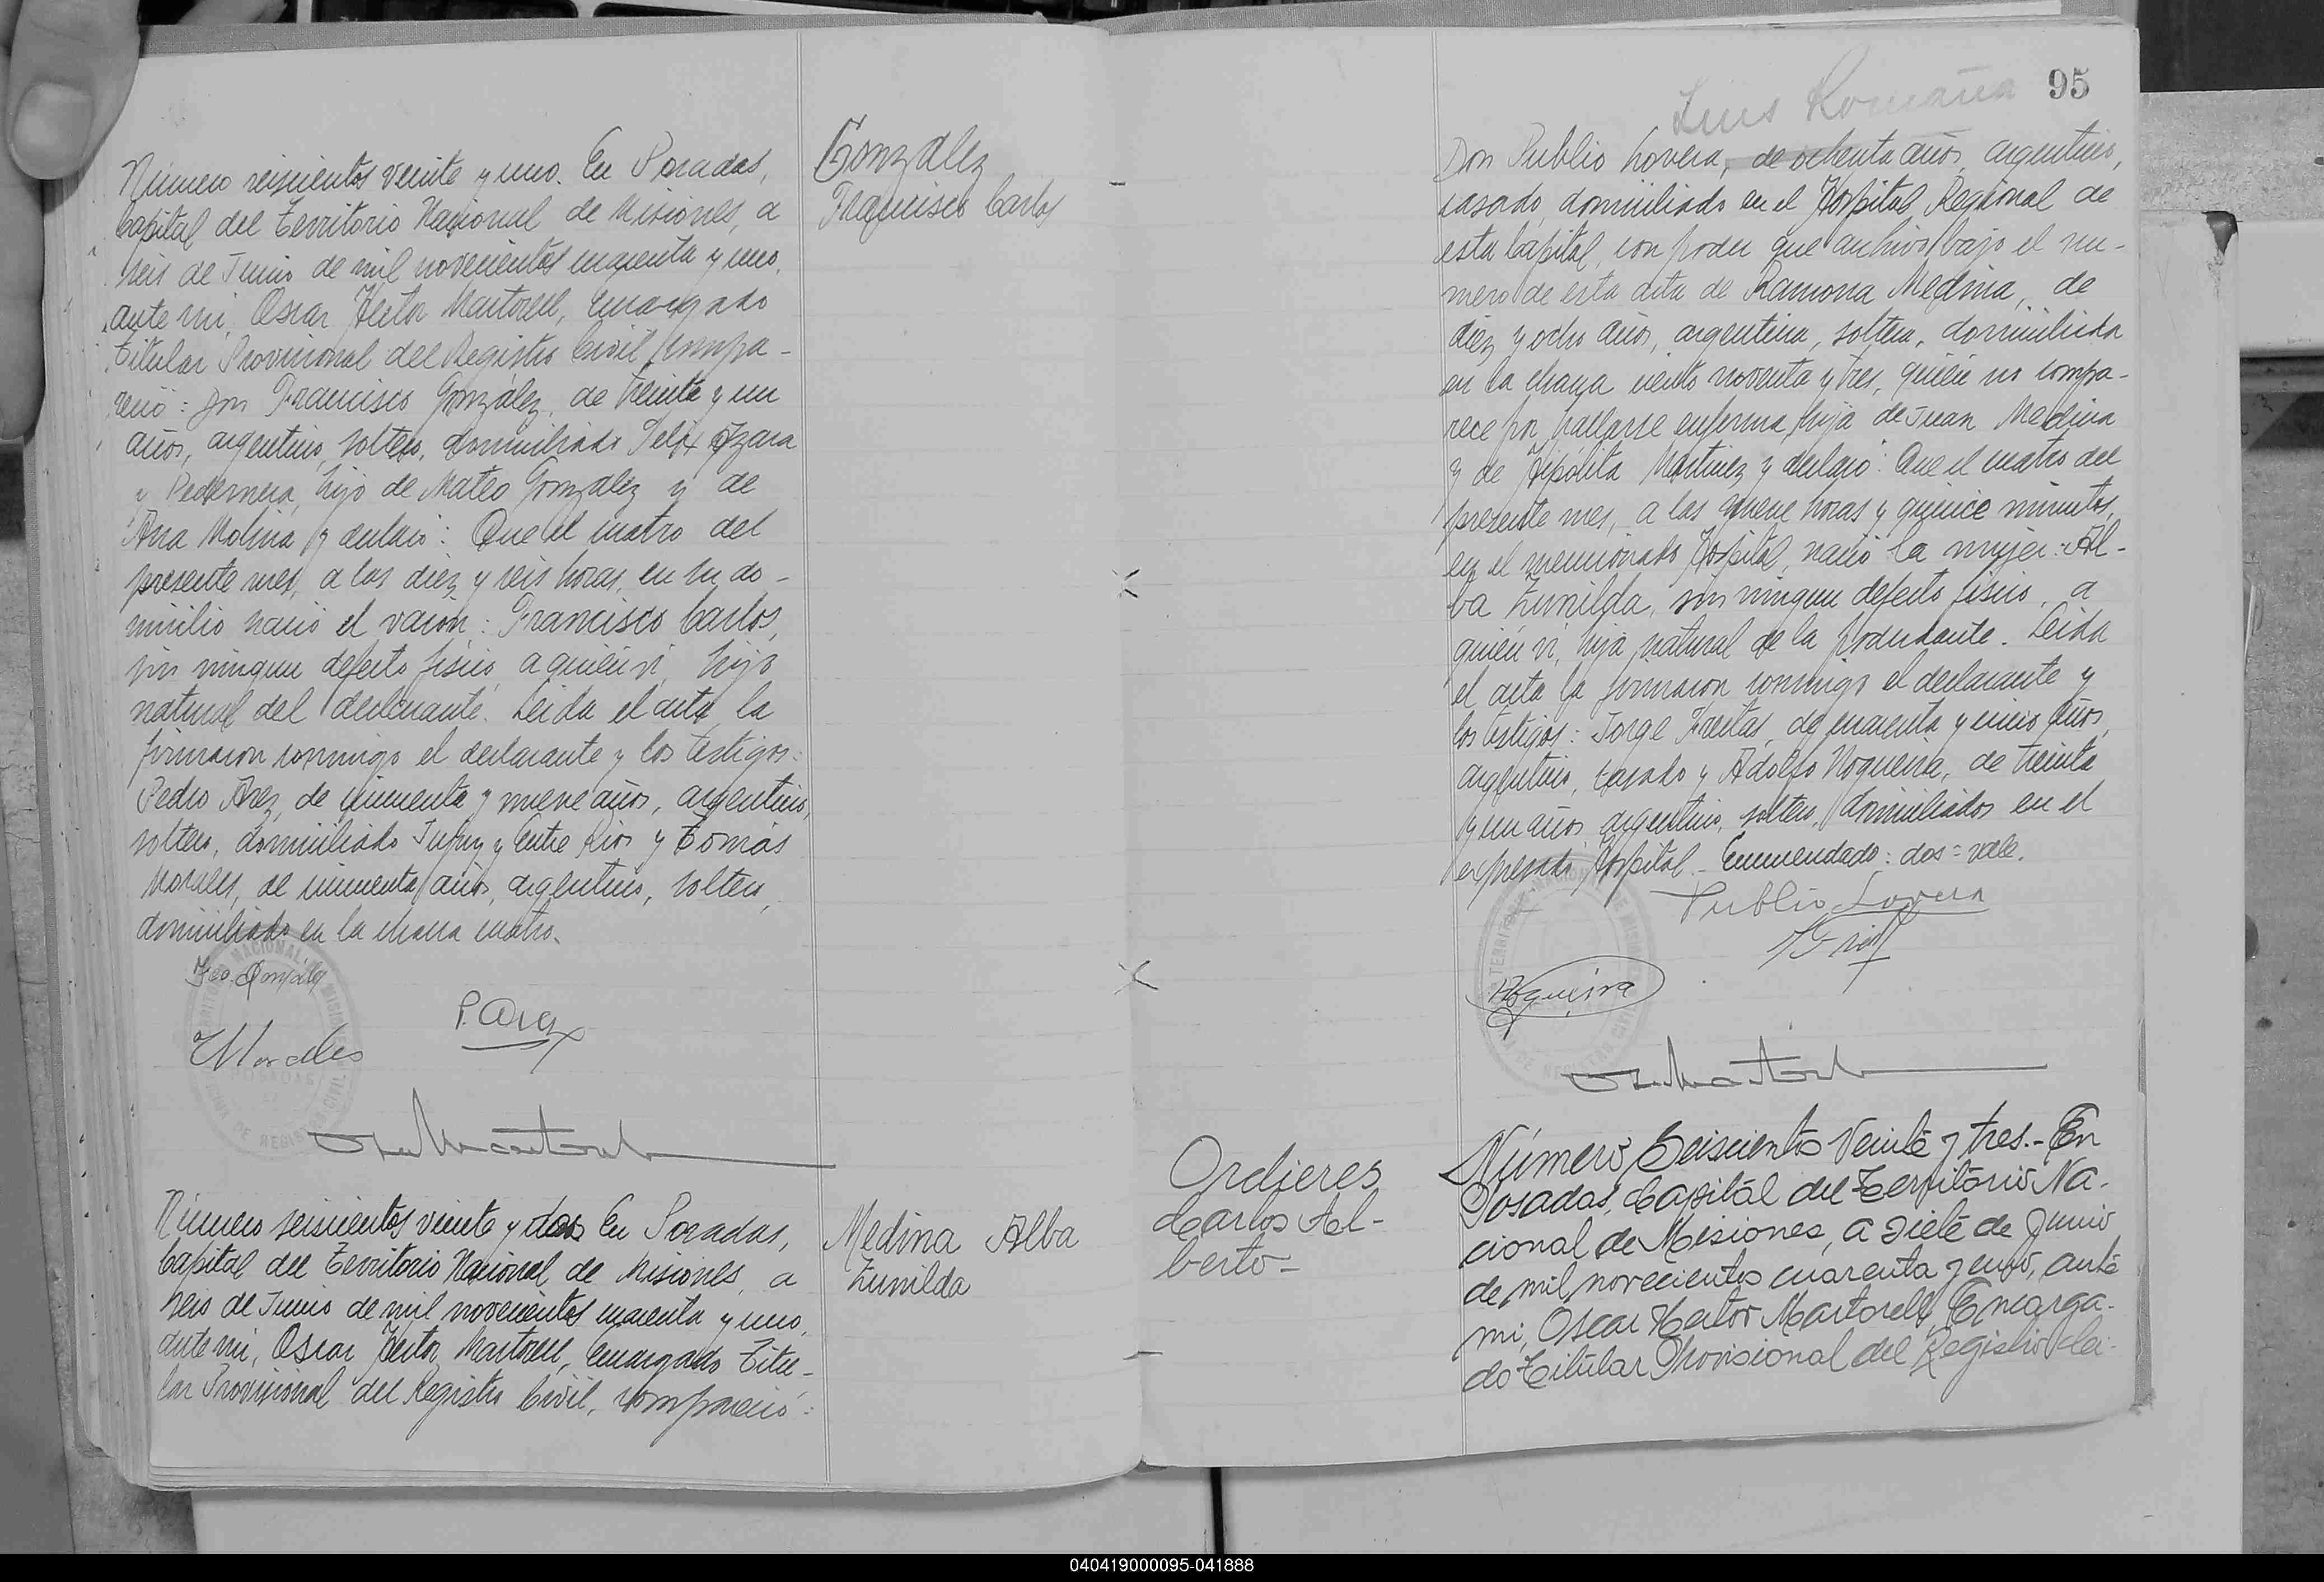 Número seiscientos veinte y uno. En Posadas,
Capital del Territorio Nacional de Misiones, a
seis de Junio de mil novecientos cuarenta y uno,
ante mi, Oscar Hector Martorell, Encargado
Titular Provisional del Registro Civil, compa-
reció: Don Francisco González, de treinta y un
años, argentino, soltero, domiciliado Felix Azara
y Pedernera, hijo de Mateo González y de
Ana Molina y declaró: Que el cuatro del
presente mes, a las diez y seis horas, en su do-
micilio nació el varón: Francisco Carlos,
sin ningun defecto físico, a quién vi, hijo
natural del declarante. Leída el acta, la
firmaron conmigo el declarante y los testigos:
Pedro Arez, de cincuenta y nueve años, argentino,
soltero, domiciliado Jujuy y Entre Rios y Tomás
Morales, de cincuenta años, argentino, soltero,
domiciliado en la chacra cuatro.
Fco. González
P. Arez
T Morales
González
Francisco Carlos
Número seiscientos veinte y dos En Posadas,
Capital del Territorio Nacional de Misiones, a
seis de Junio de mil novecientos cuarenta y uno,
ante mi, Oscar Hector Martorell, Encargado Titu-
lar Provisional del Registro Civil, compareció:
Medina Alba
Zunilda
95
Luis Romaña
Don Publio Lovera, de ochenta años, argentino,
casado, domiciliado en el Hospital Regional de
esta Capital, con poder que archivo bajo el nu-
mero de esta acta de Ramona Medina, de
diez y ocho años, argentina, soltera, domiciliada
en la chacra ciento noventa y tres, quién no compa-
rece por hallarse enferma, hija de Juan Medina
y de Hipólita Martinez y declaró: Que el cuatro del
presente mes, a las nueve horas y quince minutos,
en el mencionado Hospital, nació la mujer: Al-
ba Zunilda, sin ningun defecto físico, a
quién vi, hija natural de la poderdante. Leída
el acta la firmaron conmigo el declarante y
los testigos: Jorge Freitas, de cuarenta y cinco años,
argentino, casado y Adolfo Nogueira, de treinta
y un años, argentino, soltero, domiciliados en el
expresado Hospital.- Enmendado: dos = vale.
Publio Lovera
Nogueira
Ordieres
Carlos Al-
berto-
Número Seiscientos Veinte y tres.- En
Posadas, Capital del Territorio Na-
cional de Misiones, a siete de Junio
de mil novecientos cuarenta y uno, ante
mi, Oscar Hector Martorell, Encarga-
do Titular Provisional del Registro Ci-
040419000095-041888